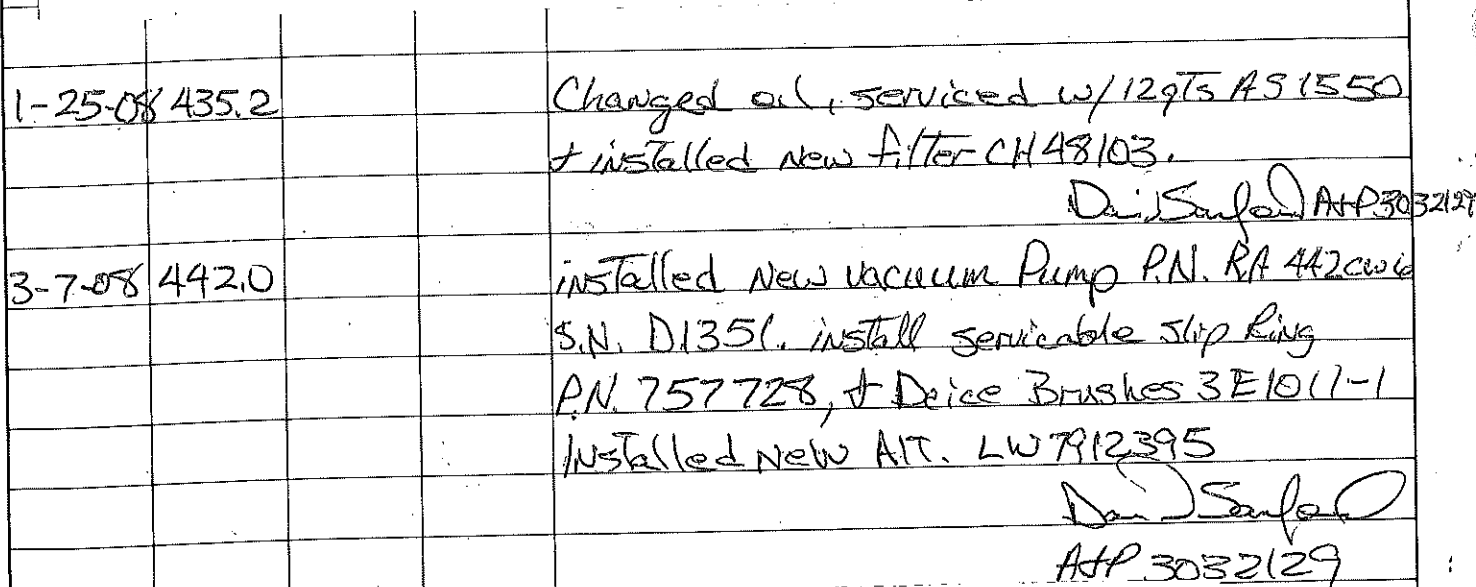 1-25-08 435.2 Changed oil, serviced w/12qTs AS1550
+ installed New filter CH48103.
David Sanford A+P 3032129
3-7-08 442.0 installed New vacuum Pump P.N. RA 442cw6
S.N. D1351. install servicable slip Ring
P.N. 757728, + Deice Brushes 3E1011-1
Installed New AlT. LW7912395
David Sanford
A+P 3032129